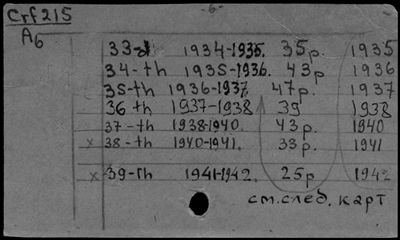 Crf215 -6-
A6
33d 1934-1935. 35p. 1935
34-th 1935-1936. 43p 1936
35-th 1936-1937. 47p. 1937
36th 1937-1938 39 1938
37-th 1938-1940. 43p. 1940
x 38-th 1940-1941. 33p. 1941
x 39-th 1941-1942. 25p 1942
см.след. карт